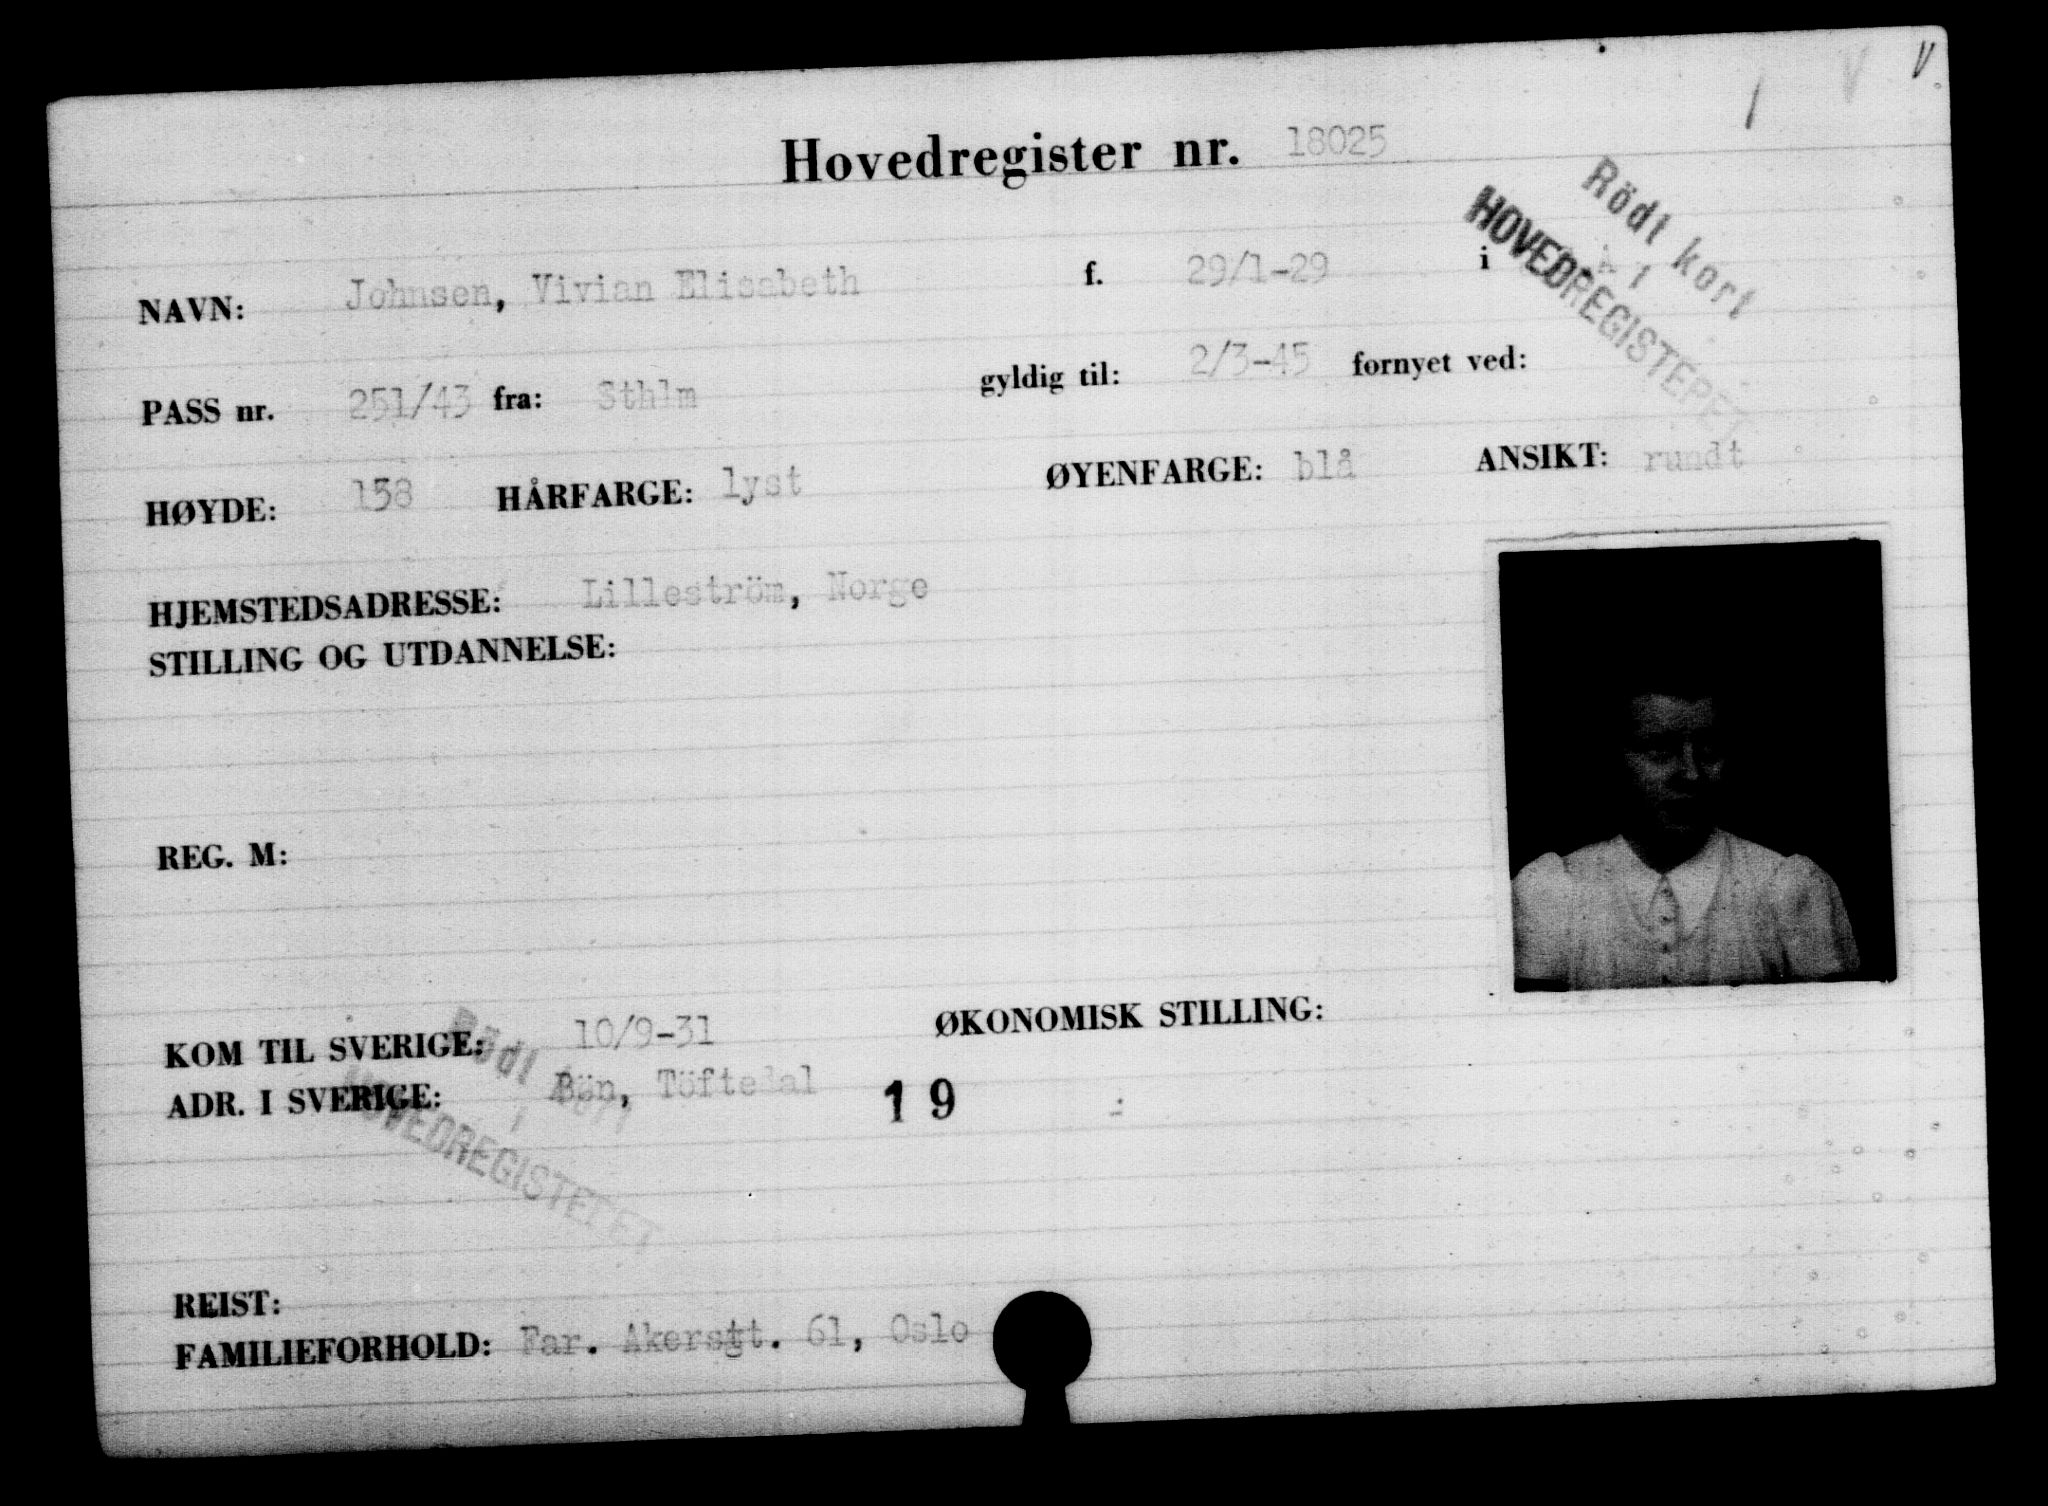 Hovedregister nr. 18025
Rödt kort
i
HOVEDREGISTERET
NAVN: Johnsen, Vivian Elisabeth f. 29/1-29 i
PASS nr. 251/43 fra: Sthlm gyldig til: 2/3-45 fornyet ved:
HØYDE: 158 HÅRFARGE: lyst ØYENFARGE: blå ANSIKT: rundt
HJEMSTEDSADRESSE: Lilleström, Norge
STILLING OG UTDANNELSE:
REG. M:
KOM TIL SVERIGE: 10/9-31 ØKONOMISK STILLING:
ADR. I SVERIGE: Bön, Töftedal 19
Rödt kort
i
HOVEDREGISTERET
REIST:
FAMILIEFORHOLD: Far. Akersgt. 61, Oslo